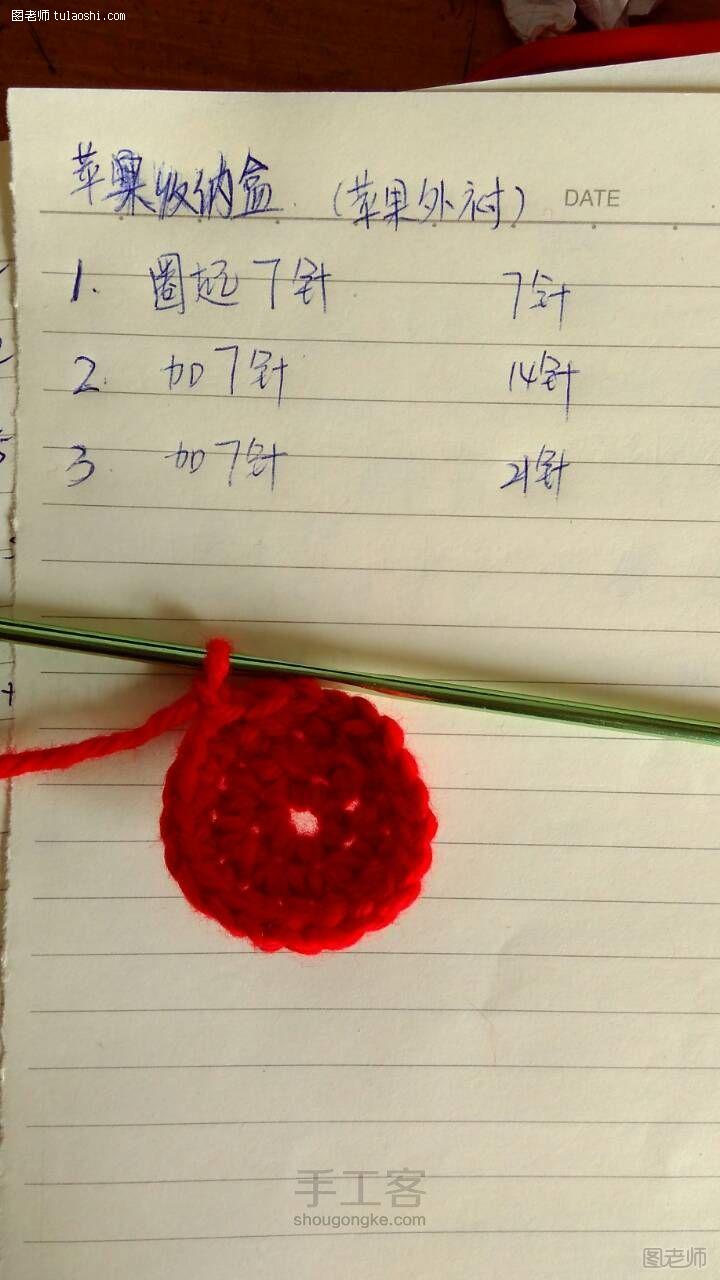 图老师 tulaoshi.com
苹果收纳盒 (苹果外衬) DATE
1. 圈起7针 7针
2. 加7针 14针
3 加7针 21针
手工客
shougongke.com
图老师